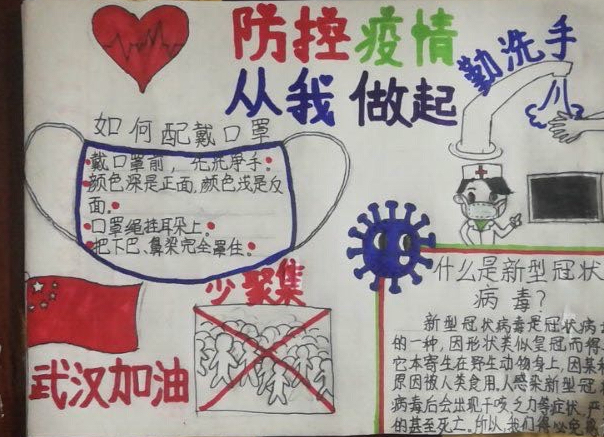 防控疫情
从我做起
勤洗手
如何配戴口罩
戴口罩前，先洗净手。
颜色深是正面，颜色浅是反
面。
口罩绳挂耳朵上。
把下巴、鼻梁完全罩住。
少聚集
武汉加油
什么是新型冠状
病毒？
新型冠状病毒是冠状病
的一种，因形状类似皇冠而得
它本寄生在野生动物身上，因某
原因被人类食用，人感染新型冠
病毒后会出现干咳乏力等症状，严
的甚至死亡。所以，我们得